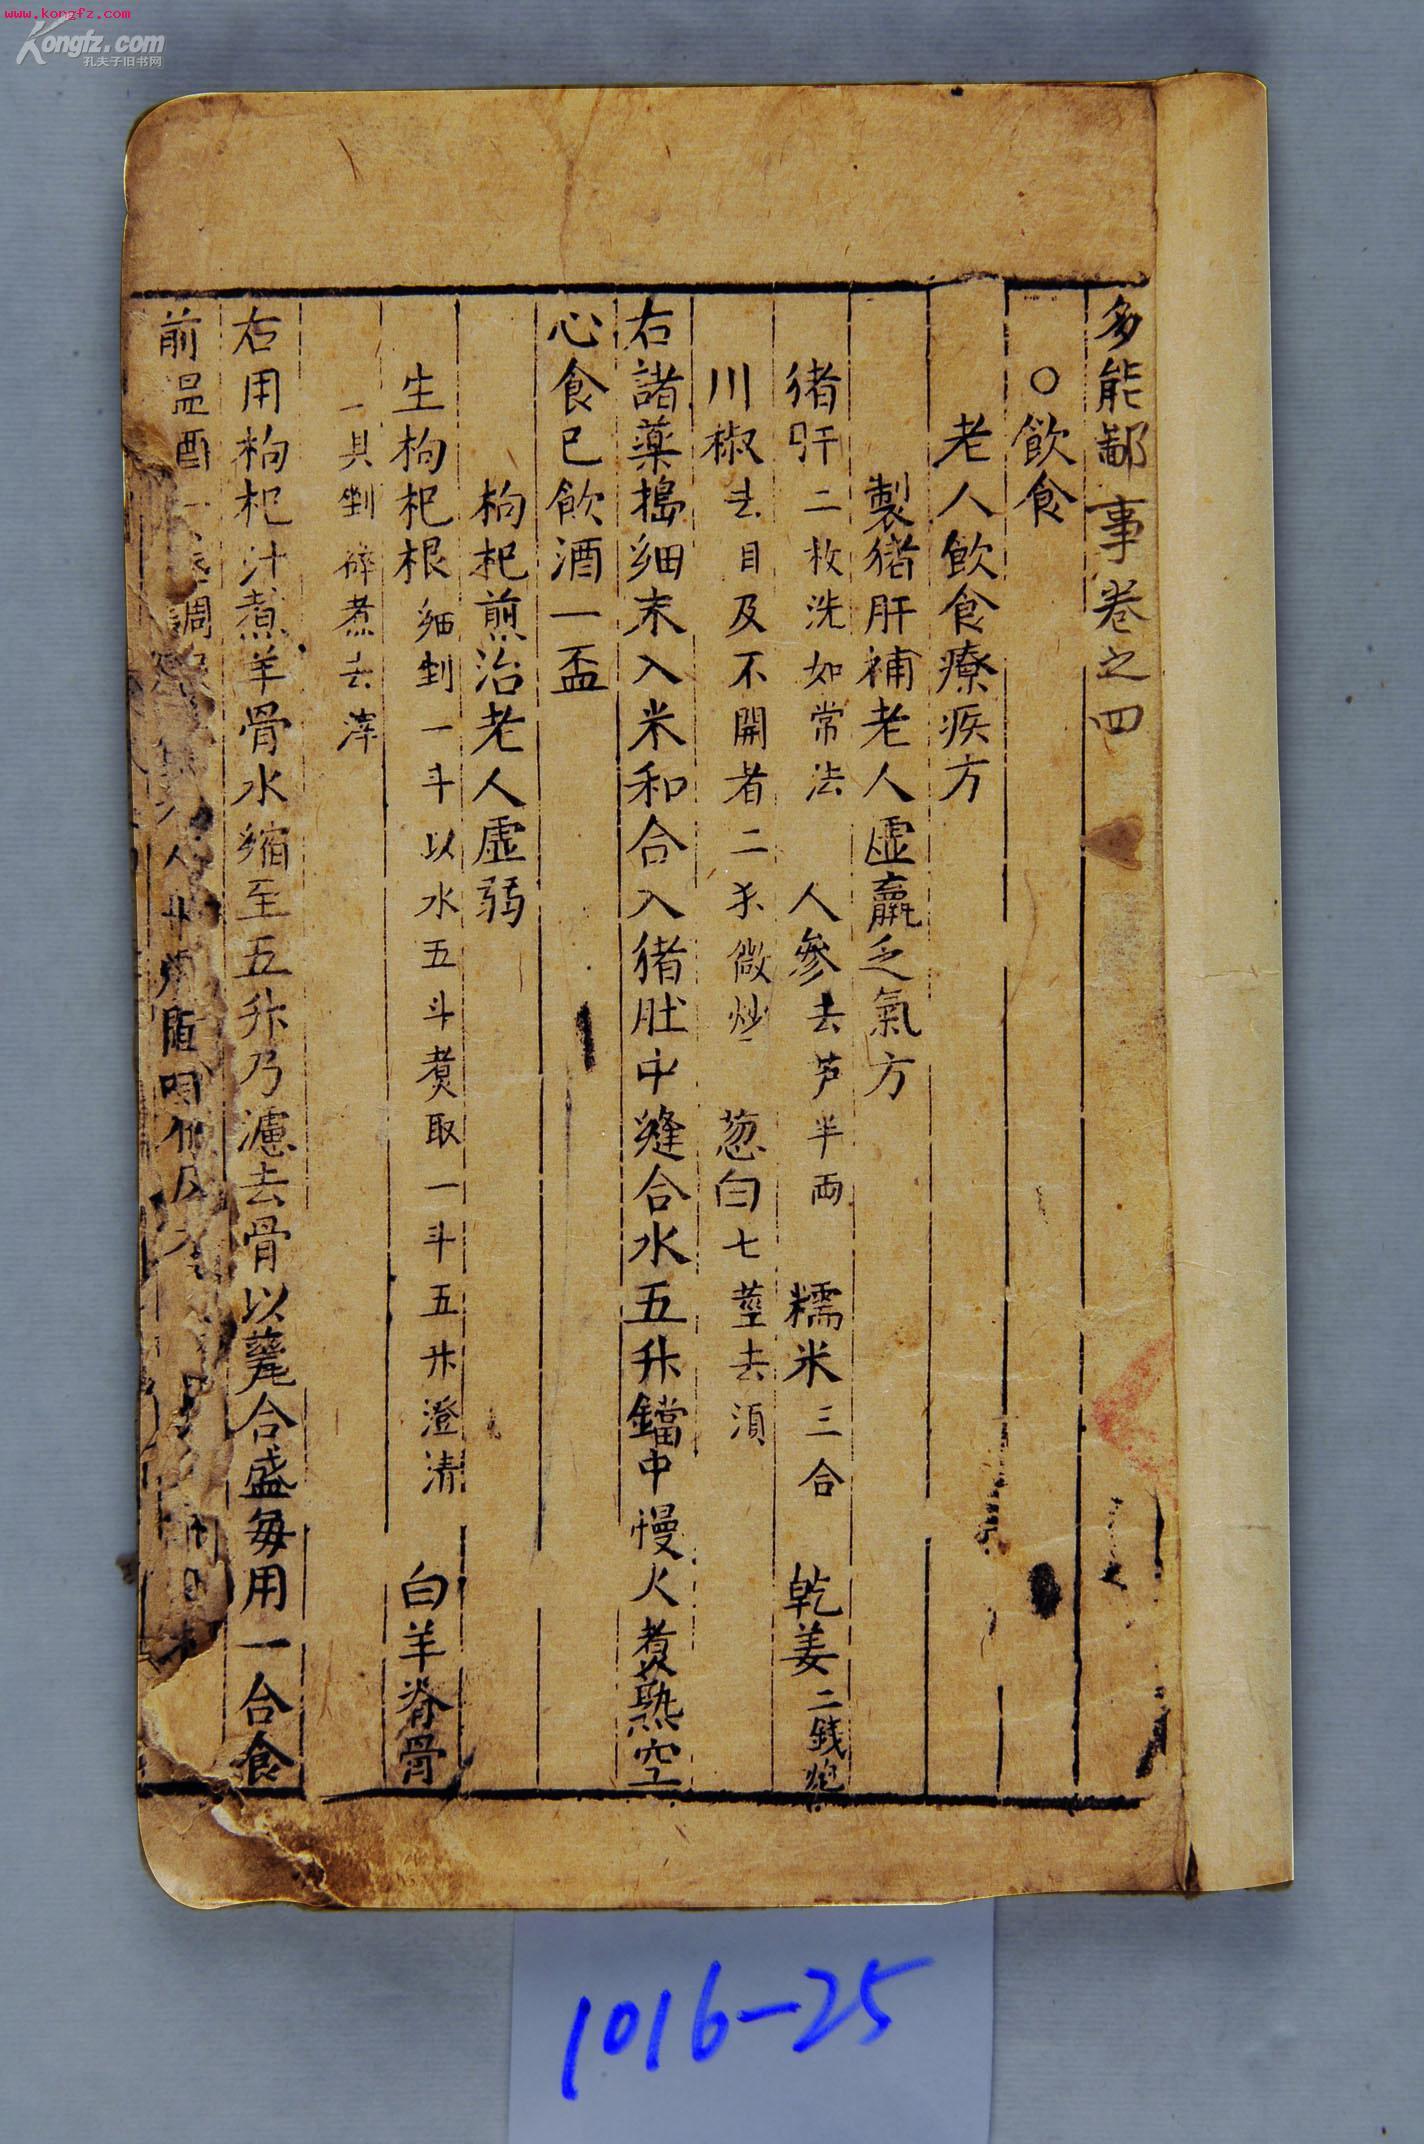 www.kongfz.com
Kongfz.com
孔夫子旧书网
多能鄙事卷之四
○飲食
老人飲食療疾方
製猪肝補老人虛羸乏氣方
猪肝二枚洗如常法 人參去芦半両 糯米三合 乾姜二銭炮
川椒去目及不開者二禾微炒 葱白七莖去湏
右諸薬搗細末入米和合入猪肚中縫合水五升鐺中慢火煑熟空
心食已飲酒一盃
枸杞煎治老人虛弱
生枸杞根細剉一斗以水五斗煑取一斗五升澄清 白羊脊骨
一具剉碎煮去滓
右用枸杞汁煮羊骨水縮至五升乃濾去骨以甆合盛每用一合食
前温酒一 調 人
1016-25